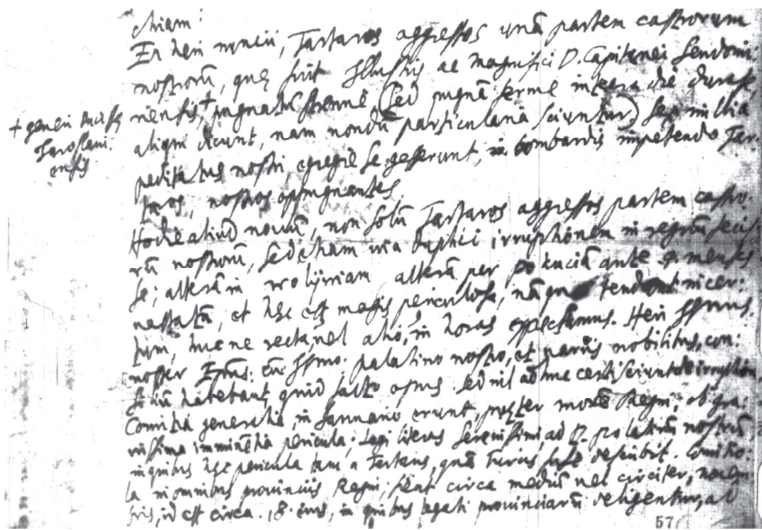 chiam:
Er heri nuncii, Tartaros aggressos unã partem castrorum
nostrorũ, quę fuit Illustris ac Magnifici D. Capitanei Sendomi-
riensis, + pugnatũ strenuè (sed pugnã ferme integra die durasse
aliqui dicunt, nam nondũ particularia sciuntur) Sex millia
peditatus nostri, egregie se gesserunt, in bombardis impetendo Tar-
taros, nostros oppugnantes
+ generi Ducissę
Jaroslavi-
ensis
Hodie aliud novum, non solũ Tartaros aggressos partem castro-
rũ nostrorũ, sed etiam via duplici irruptionem in regnũ fecis-
se; alterã in Wolijniam alterã per Pokuciã ante menses
et hęc est magis periculosa, tendunt
huc ne recta, vel alio, in horas expectamus. Heri Illmus.
noster cũ Illmo. palatino nostro, et pariis nobilibus, con-
habebant quid facto opus. sed nil adhuc certi sciunt de irruption
Comitia generalia in Januario erunt, pręter morẽ Regni, ob gra-
vissima imminẽtia pericula; legi literas Serenissimi ad D. palatinũ nostrũ
in quibus hęc pericula tam a Tartaris, quã Turcis describit. Comitio-
la in omnibus provinciis Regni fient circa mediũ vel circiter, novem-
bris, id est circa .18. eius, in quibus legati provinciarũ eligentur, ad
57